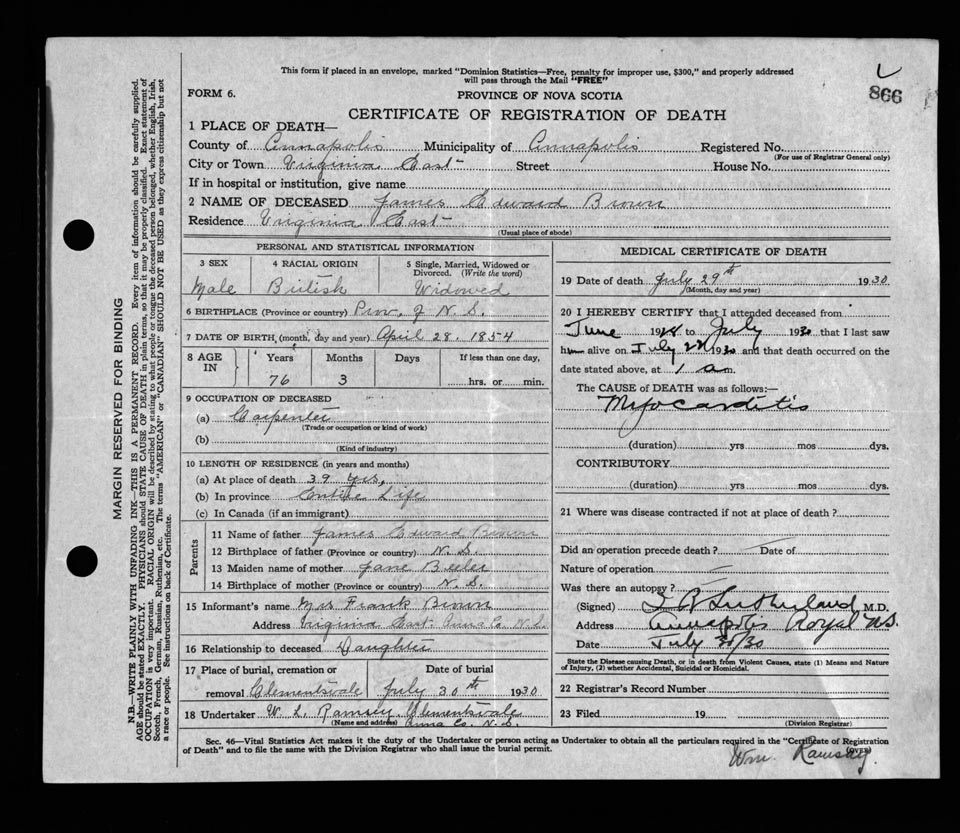 This form if placed in an envelope, marked "Dominion Statistics—Free, penalty for improper use, $300," and properly addressed
will pass through the Mail "FREE"
866
FORM 6.
PROVINCE OF NOVA SCOTIA
CERTIFICATE OF REGISTRATION OF DEATH
1 PLACE OF DEATH—
County of Annapolis Municipality of Annapolis Registered No.
(For use of Registrar General only)
City or Town Virginia East Street House No.
If in hospital or institution, give name
2 NAME OF DECEASED James Edward Brown
Residence Virginia East
(Usual place of abode)
PERSONAL AND STATISTICAL INFORMATION
3 SEX 4 RACIAL ORIGIN 5 Single, Married, Widowed or
Divorced. (Write the word)
Male British Widowed
6 BIRTHPLACE (Province or country) Prov. of N. S.
7 DATE OF BIRTH (month, day and year) April 28. 1854
8 AGE IN Years Months Days If less than one day,
76 3 hrs. or min.
9 OCCUPATION OF DECEASED
(a) Carpenter
(Trade or occupation or kind of work)
(b)
(Kind of industry)
10 LENGTH OF RESIDENCE (in years and months)
(a) At place of death 39 yrs.
(b) In province Entire Life
(c) In Canada (if an immigrant)
Parents
11 Name of father James Edward Brown
12 Birthplace of father (Province or country) N. S.
13 Maiden name of mother Jane Beeler
14 Birthplace of mother (Province or country) N. S.
15 Informant's name Mrs Frank Brown
Address Virginia East Anna Co. N.S.
16 Relationship to deceased Daughter
17 Place of burial, cremation or Date of burial
removal Clementsvale July 30th 1930
18 Undertaker W. L. Ramsey, Clementsvale
(Name and address) Anna Co. N. S.
MEDICAL CERTIFICATE OF DEATH
19 Date of death July 29th 1930
(Month, day and year)
20 I HEREBY CERTIFY that I attended deceased from
June 1928 to July 1930 that I last saw
him alive on July 28 1930 and that death occurred on the
date stated above, at 1 a m.
The CAUSE of DEATH was as follows:—
Myocarditis
(duration) yrs mos dys.
CONTRIBUTORY
(duration) yrs mos dys.
21 Where was disease contracted if not at place of death?
Did an operation precede death? Date of
Nature of operation
Was there an autopsy?
(Signed) L B Sutherland M.D.
Address Annapolis Royal N.S.
Date July 30/30
State the Disease causing Death, or in death from Violent Causes, state (1) Means and Nature
of Injury, (2) whether Accidental, Suicidal or Homicidal.
22 Registrar's Record Number
23 Filed 19
(Division Registrar)
Sec. 46—Vital Statistics Act makes it the duty of the Undertaker or person acting as Undertaker to obtain all the particulars required in the "Certificate of Registration
of Death" and to file the same with the Division Registrar who shall issue the burial permit.
(OVER)
Wm. Ramsay.
MARGIN RESERVED FOR BINDING
N.B.—WRITE PLAINLY WITH UNFADING INK—THIS IS A PERMANENT RECORD. Every item of information should be carefully supplied.
AGE should be stated EXACTLY. PHYSICIANS should STATE CAUSE OF DEATH in plain terms, so that it may be properly classified. Exact statement of
OCCUPATION is very important. RACIAL ORIGIN will be described by stating to what people or tongue the deceased person belonged, whether English, Irish,
Scotch, French, German, Russian, Ruthenian, etc. The terms "AMERICAN" or "CANADIAN" SHOULD NOT BE USED as they express citizenship but not
a race or people. See instructions on back of Certificate.